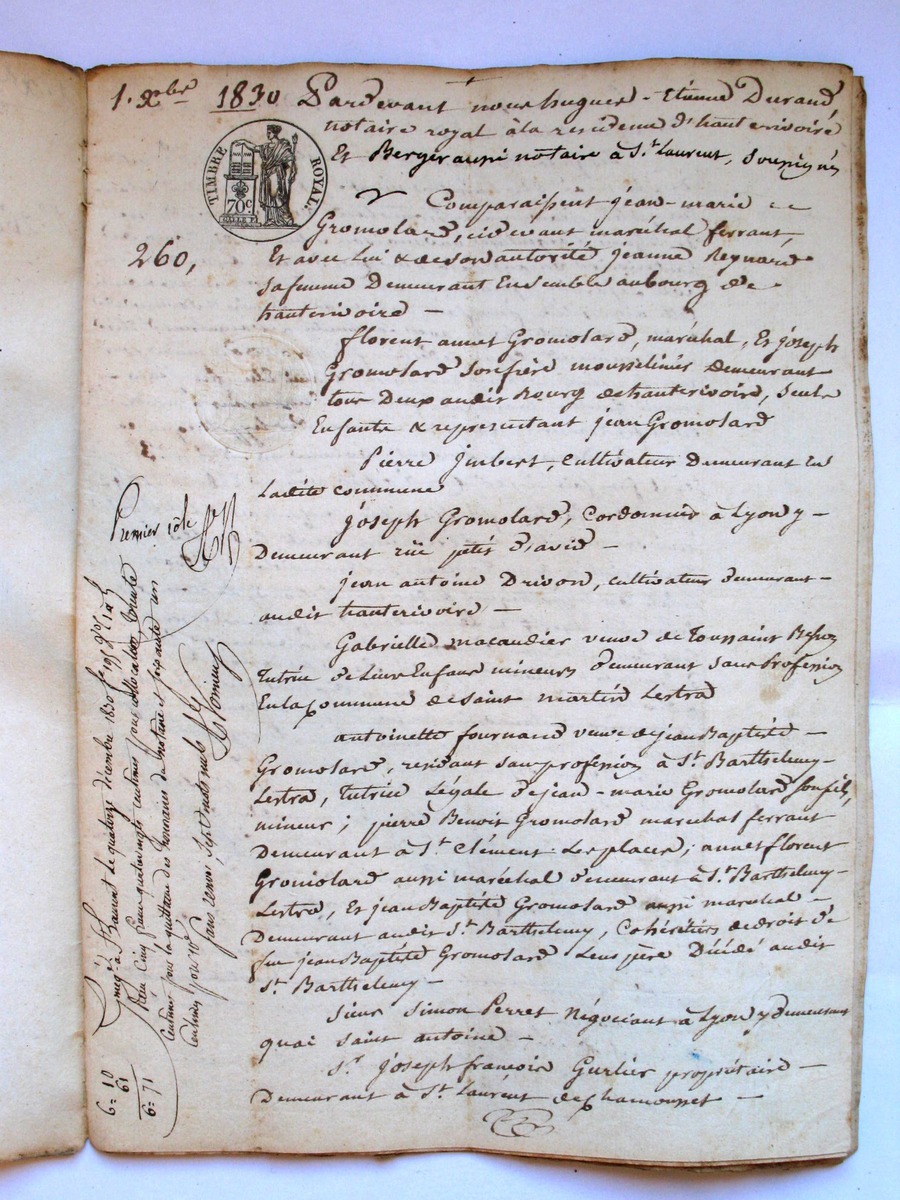 1. Xbre 1830
Pardevant nous hugues-Etienne Durand,
notaire royal à la residence d'hauterivoire
Et Berger aussi notaire à St. Laurent, Soussignés
TIMBRE ROYAL.
70c
Comparaissent jean-marie
Gromolard, cidevant maréchal ferrant,
Et avec lui & de son autorité jeanne Reynard
sa femme Demeurant Ensemble au bourg de
hauterivoire —
260,
florent annet Gromolard, maréchal, Et joseph
Gromolard son frère mousselinier demeurant
tous Deux audit Bourg de hauterivoire, seuls
Enfants & representant jean Gromolard
Pierre jmbert, cultivateur Demeurant En
Ladite commune
joseph Gromolard, Cordonnier à Lyon y-
Demeurant rüe petit David —
jean antoine Drivon, cultivateur demeurant-
audit hauterivoire —
Gabrielle macaudier veuve de Toussaint
Tutrice de Leurs Enfans mineurs demeurant sans Profession
En la Commune de Saint martin Lestra
antoinette fournand veuve de jean Baptiste —
Gromolard, residant sans profession à St. Barthelemy-
Lestra, Tutrice Légale de jean-marie Gromolard son fils,
mineur; pierre Benoit Gromolard marechal ferrant
Demeurant à St. Clément-Les places; annet florent
Gromolard aussi maréchal demeurant à St. Barthelemy-
Lestra, Et jean Baptiste Gromolard aussi marechal —
Demeurant audit St. Barthelemy, Cohéritiers de droit de
feu jean Baptiste Gromolard Leur père Décédé audit
St. Barthelemy —
Sieur Simon Perret Négociant à Lyon y demeurant
quai saint antoine —
Sr. joseph françois Gurlier propriétaire —
Demeurant à St. Laurent de Chamousset —
Premier rôle
Enregé. à St. Laurent le quatorze décembre 1830 fo 195
Reçu Cinq francs quatrevingts centimes pour allocation trente
centimes pour la quittance des honoraires du notaire et soixante un
centimes pour 10e
sans renvoi, sept mots nuls
6 = 10
61
6 = 71